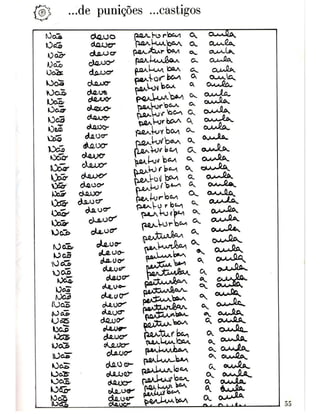 ...de punições ...castigos
Não devo perturbar a aula
Não devo perturbar a aula
Não devo perturbar a aula
Não devo perturbar a aula
Não devo perturbar a aula
Não devo perturbar a aula
Não devo perturbar a aula
Não devo perturbar a aula
Não devo perturbar a aula
Não devo perturbar a aula
Não devo perturbar a aula
Não devo perturbar a aula
Não devo perturbar a aula
Não devo perturbar a aula
Não devo perturbar a aula
Não devo perturbar a aula
Não devo perturbar a aula
Não devo perturbar a aula
Não devo perturbar a aula
Não devo perturbar a aula
Não devo perturbar a aula
Não devo perturbar a aula
Não devo perturbar a aula
Não devo perturbar a aula
Não devo perturbar a aula
Não devo perturbar a aula
Não devo perturbar a aula
Não devo perturbar a aula
Não devo perturbar a aula
Não devo perturbar a aula
Não devo perturbar a aula
Não devo perturbar a aula
Não devo perturbar a aula
Não devo perturbar a aula
Não devo perturbar a aula
Não devo perturbar a aula
Não devo perturbar a aula
Não devo perturbar a aula
Não devo perturbar a aula
Não devo perturbar a aula
Não devo perturbar a aula
55